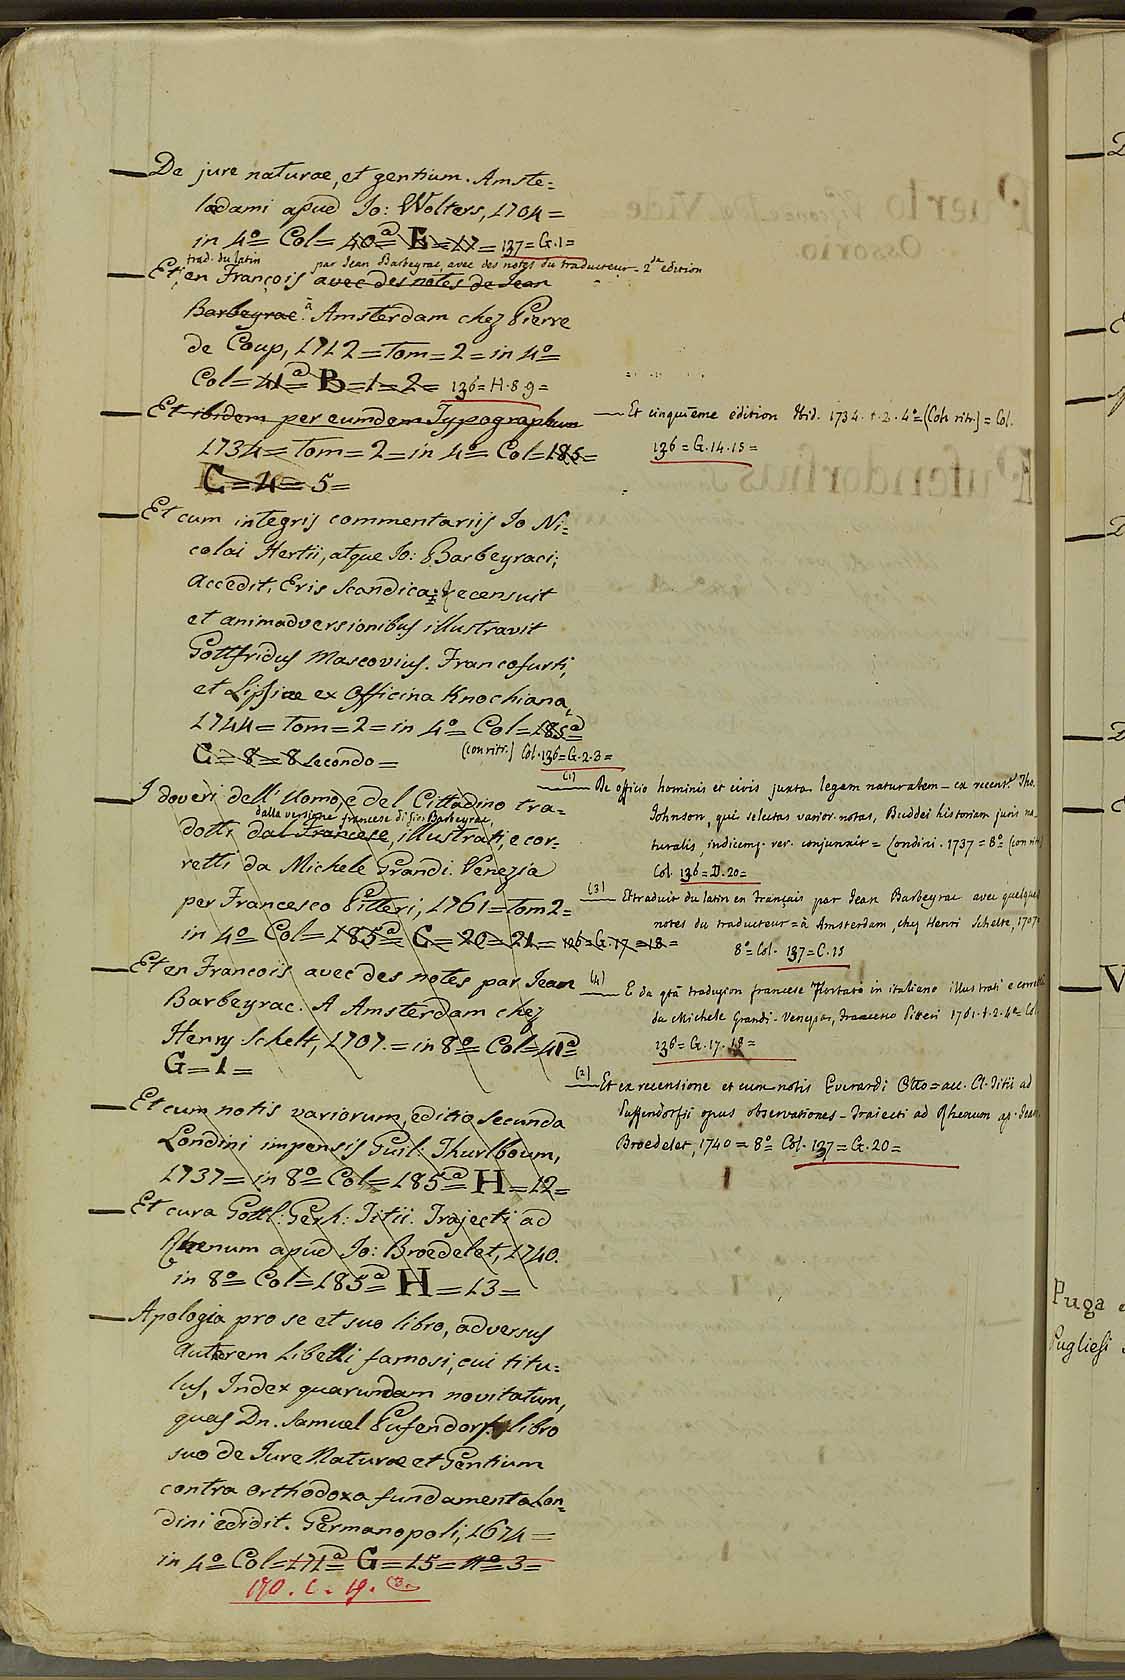 De jure naturae, et gentium. Amste=
lædami apud Jo: Wolters, 1704=
in 4º= Col= 40ª= E=17= 137=G.1=
trad. du latin par Jean Barbeyrac, avec des notes du traducteur - 2de edition
Et, en François avec des notes de Jean
Barbeyrac. à Amsterdam chez Pierre
de Coup, 1712=Tom=2=in 4º
Col=41ª= B=1=2= 136=H.8 9=
Et ibidem per eumdem Typographum
1734=Tom=2=in 4º Col=185=
C=4=5=
Et cum integris commentariis Jo Ni=
colai Hertii, atque Jo: Barbeyraci;
Accedit, Eris Scandica: Recensuit
et animadversionibus illustravit
Gottfridus Mascovius. Francofurti,
et Lipsiae ex Officina Knochiana,
1744=Tom=2=in 4º Col=185ª
C=8=8 secondo= (con ritr.) Col.136=G.2.3=
I doveri dell' Uomo, e del Cittadino tra=
dalla versione francese di Gio: Barbeyrac,
dotti dal Francese, illustrati, e cor=
retti da Michele Grandi. Venezia
per Francesco Pitteri, 1761=Tom 2=
in 4º Col=185ª C=20=21= 136=G.17=18=
Et en François avec des notes par Jean
Barbeyrac. A Amsterdam chez
Henry Schelt, 1707.=in 8º Col=41ª
G=1=
Et cum notis variorum, editio secunda
Londini impensis Guil: Thurlboum,
1737=in 8º Col=185ª H=12=
Et cura Gottl: Gerh: Titii. Trajecti ad
Rhenum apud Jo: Broedelet, 1740.
in 8º Col=185ª H=13=
Apologia pro se et suo libro, adversus
Autorem Libelli famosi, cui titu=
lus, Index quarundam novitatum,
quas Dn. Samuel Pufendorf libro
suo de Jure Naturae et Gentium
contra orthodoxa fundamenta Lon=
dini edidit. Germanopoli, 1674=
in 4º Col=171ª G=15=nº 3=
170. C. 19. (3.
Et cinquième édition Ibid. 1734. t.2. 4º=(Con ritr.)=Col.
136=G.14.15=
(1) De officio hominis et civis juxta legem naturalem - ex recens. Tho.
Johnson, qui selectas varior. notas, Buddei historiam juris na=
turalis, indicemq. rer. conjunxit = Londini. 1737=8º (con ritr.)
Col. 136=D.20=
(3) Et traduit du latin en français par Jean Barbeyrac avec quelques
notes du traducteur=à Amsterdam, chez Henri Schelte, 1707
8º Col. 137=C.15
(4) E da qta traduzion francese Portata in italiano illustrati e corretti
da Michele Grandi - Venezia, Francesco Pitteri 1761. t.2. 4º Col.
136=G.17.18=
(2) Et ex recensione et cum notis Everardi Otto=acc. Cl. Titii ad
Puffendorfii opus observationes - Traiecti ad Rhenum ap. Jean
Broedelet, 1740=8º Col. 137=G.20=
Puga
Pugliesi